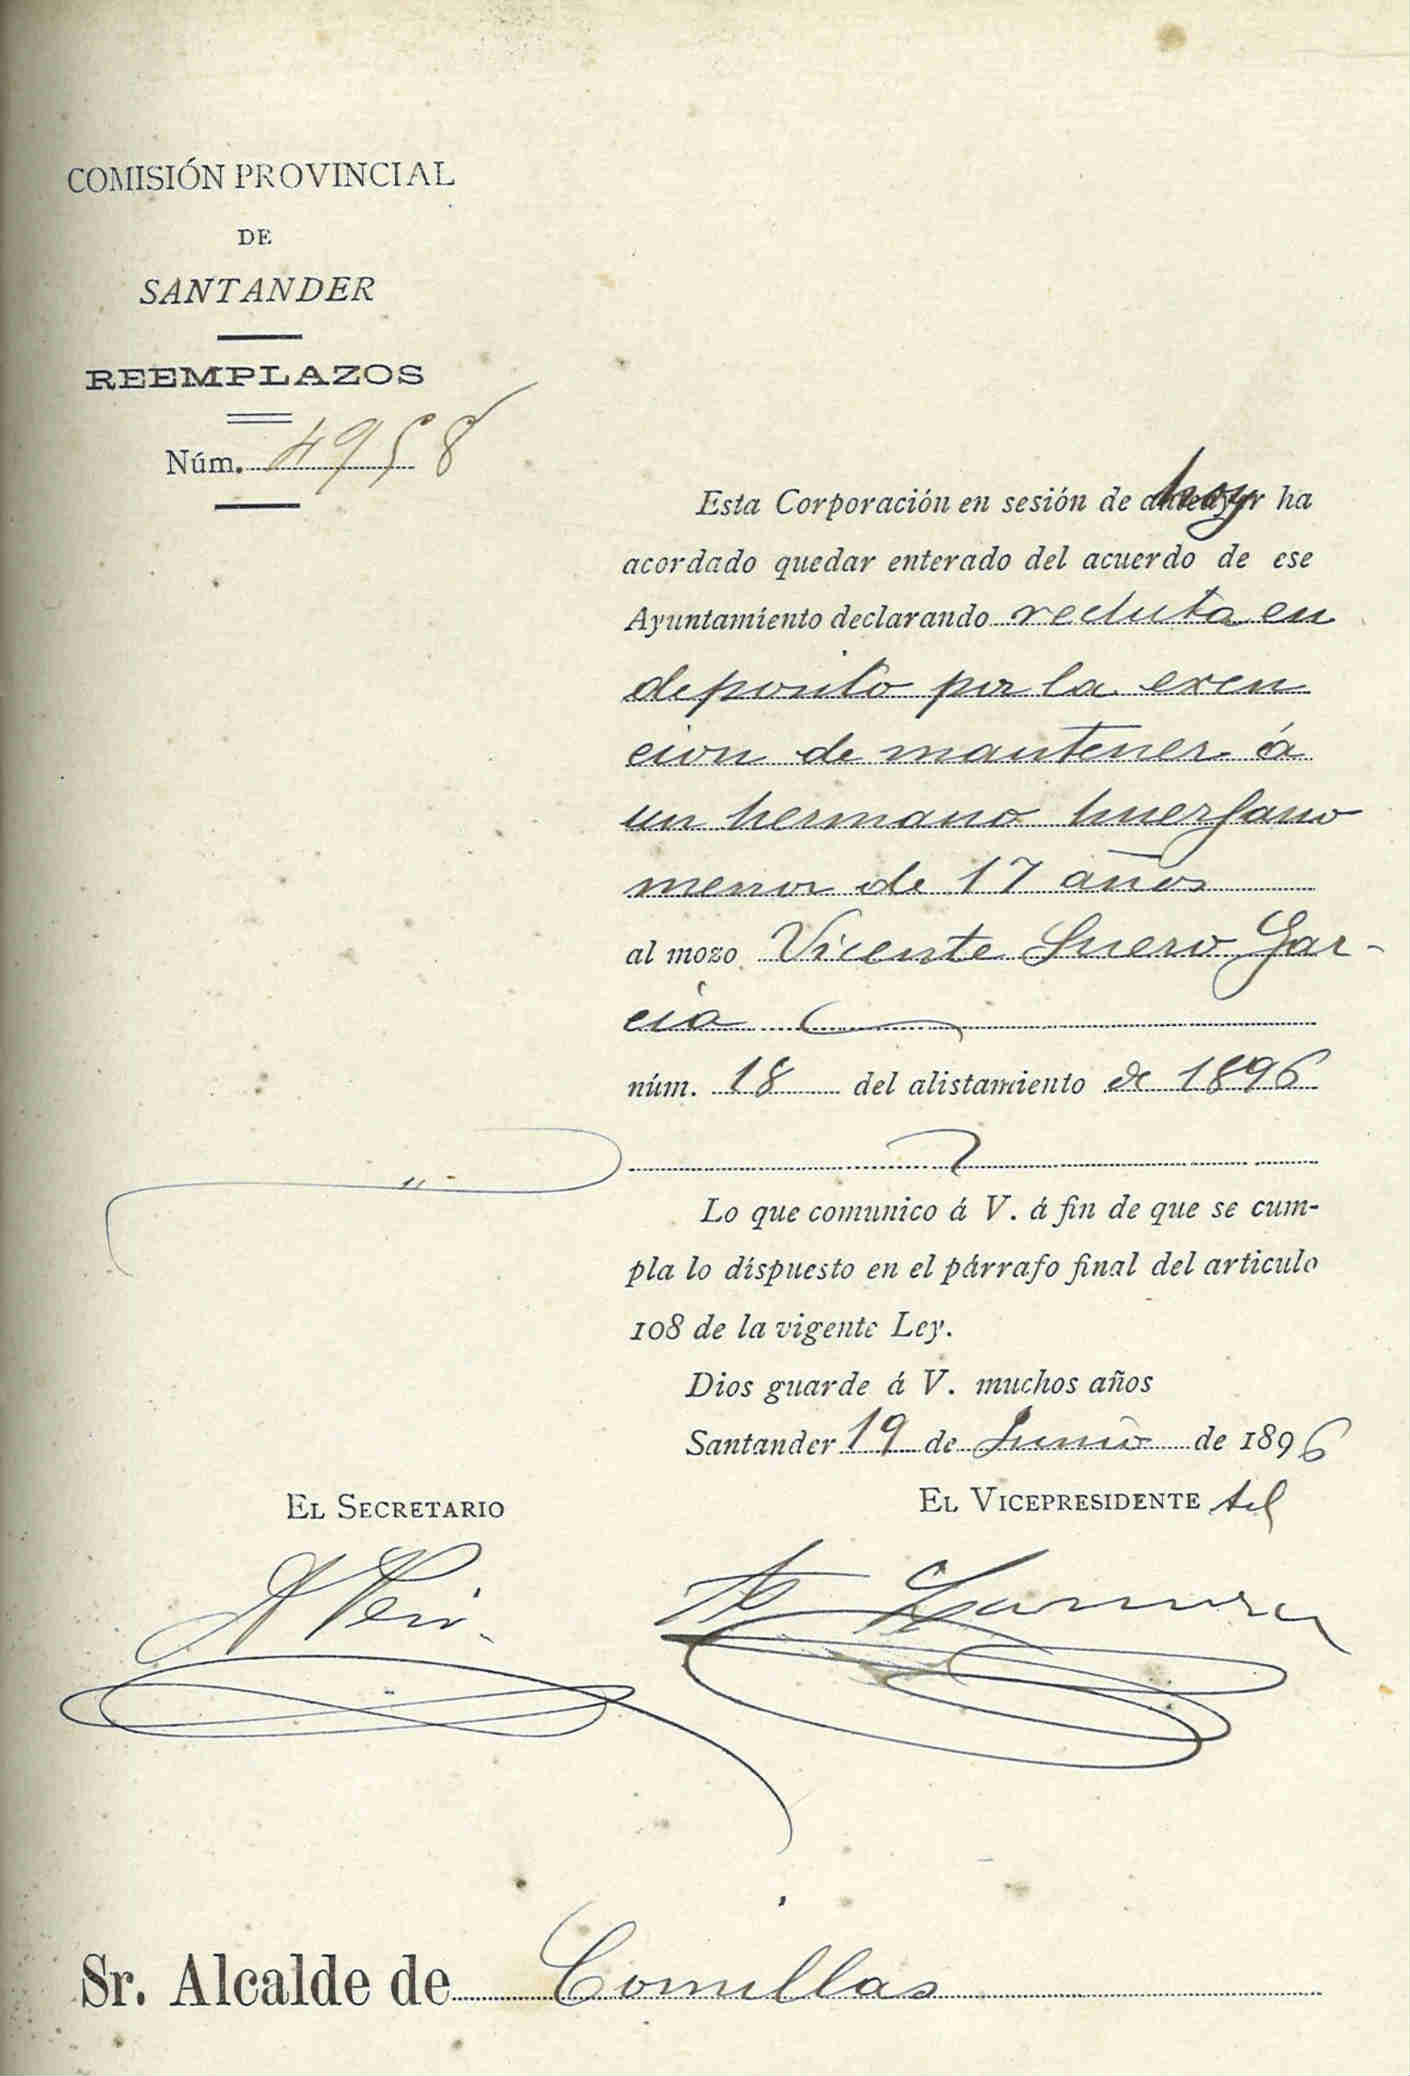 COMISIÓN PROVINCIAL
DE
SANTANDER
REEMPLAZOS
Núm. 4958
Esta Corporación en sesión de hoy ha
acordado quedar enterado del acuerdo de ese
Ayuntamiento declarando recluta en
deposito por la exen
cion de mantener á
un hermano huerfano
menor de 17 años
al mozo Vicente Suero Gar-
cia
núm. 18 del alistamiento de 1896
Lo que comunico á V. á fin de que se cum-
pla lo dispuesto en el párrafo final del articulo
108 de la vigente Ley.
Dios guarde á V. muchos años
Santander 19 de Junio de 1896
EL SECRETARIO
EL VICEPRESIDENTE
Sr. Alcalde de Comillas